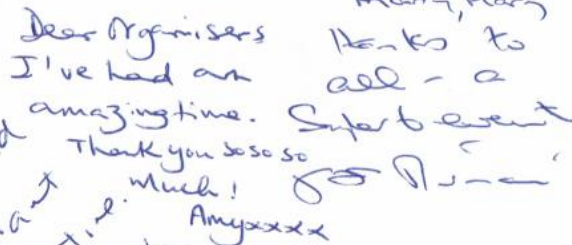 Dear Organisers
I've had an
amazing time.
Thank you so so so
much!
Amyxxxx
Many, Many
thanks to
all - a
Superb event